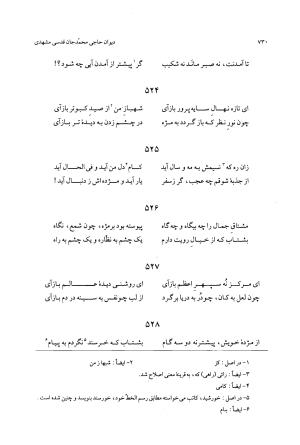 ۷۳۰
دیوان حاجی محمدجان قدسی مشهدی
تا آمدنت، نه صبر مانَد نه شکیب
گر پیشتر از آمدن آیی چه شود؟!
۵۲۴
ای تازه نهالِ سایه‌پرور بازآی
شهبازِ من از صیدِ کبوتر بازآی
چون نورِ نظر که باز گردد به مژه
در چشمم زدن به دیدۀ تر بازآی
۵۲۵
زان ره که نسیمش به مه و سال آید
کامِ دل من آید و فی‌الحال آید
از جذبۀ شوقم چه عجب، گر زسفر
یار آید و مژده‌اش ز دنبال آید
۵۲۶
مشتاق جمال را چه بیگاه و چه گاه
پیوسته بود برمژه، چون شمع، نگاه
بشتاب که از خیالِ رویت دارم
یک چشم به نظّاره و یک چشم به راه
۵۲۷
ای مرکزِ نُه سپهرِ اعظم بازآی
ای روشنیِ دیدۀ عالم بازآی
چون لعل به کان، چودُر به دریا برگرد
از لب چونفس به سینه در دم بازآی
۵۲۸
از مژدۀ خویش، پیشترنه دو سه گام
بشتاب که خرسند نگردم به پیام
۱- در اصل: کز
۲- ایضاً: شبها ز من
۳- ایضاً: زانی (راهی) که، به قرینۀ معنی اصلاح شد.
۴- ایضاً: کامی
۵- در اصل: خورشید، کاتب می‌خواسته مطابق رسم الخط خود، خرسند بنویسد و چنین شده است.
۶- ایضاً: بام